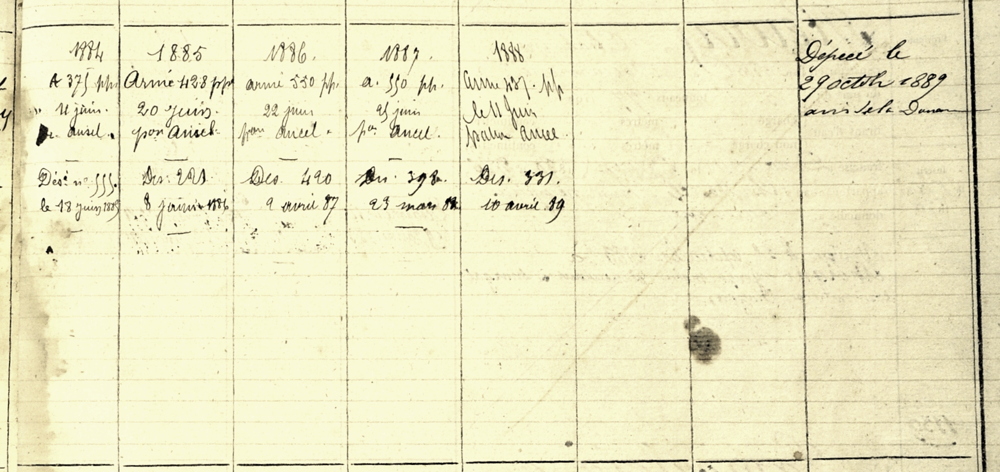 1884
A 375 pp.
11 juin
ancel.
Dés. nº 555.
le 13 juin 1885
1885
Armé 428 pp
20 juin
par Ancel
Des. 221
8 janvr 1886
1886.
armé 550 pp.
22 juin
par ancel.
Des. 420
9 avril 87
1887.
a. 550 pp.
25 juin
par ancel.
Des. 392.
23 mars 88
1888
Armé 437. pp
le 11 Juin
ancel.
Des. 331.
10 avril 89
Dépecé le
29 octob 1889
avis de la Douane